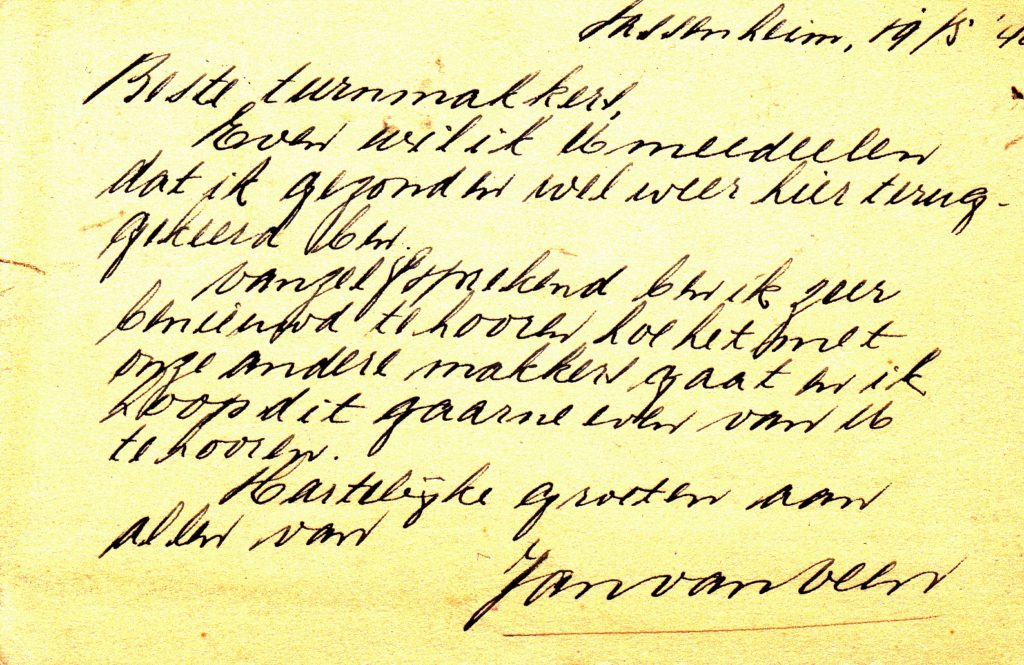 Sassenheim, 19/5 '4
Beste turnmakkers,
Even wil ik U meedeelen
dat ik gezond en wel weer hier terug-
gekeerd ben.
Vanzelfsprekend ben ik zeer
benieuwd te hooren hoe het met
onze andere makkers gaat en ik
hoop dit gaarne even van U
te hooren.
Hartelijke groeten aan
allen van
Jan van Veen